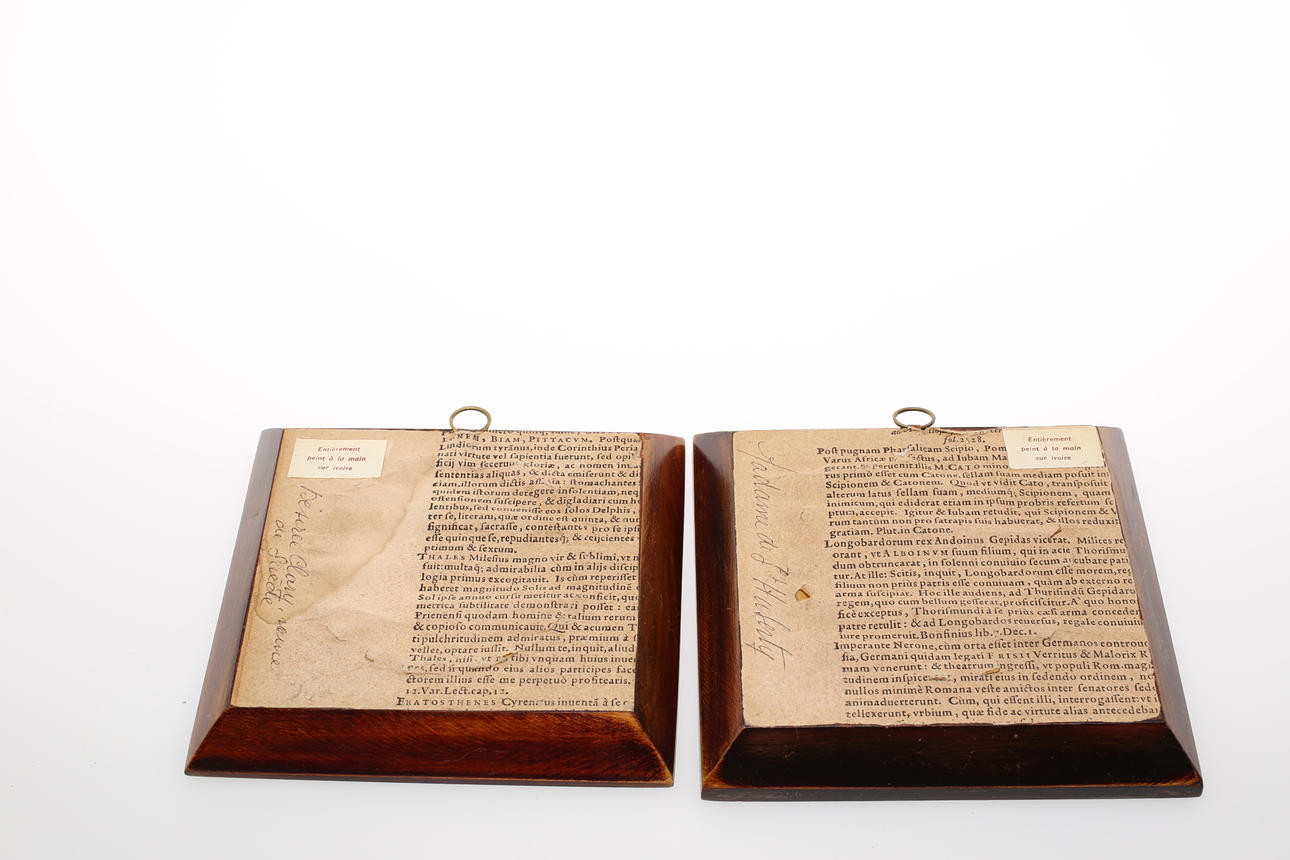 Entièrement
peint à la main
sur ivoire
Désirée Clary, reine
de Suède
NEM, BIAM, PITTACVM. Postqua
Lindiorum tyrānus, inde Corinthius Peria
nati virtute vel sapientia fuerunt, sed opi
ficij vim fecerūt gloriæ, ac nomen
sententias aliquas, & dicta emiserunt & di
ciam, illorum dictis stomachantes
quidem istorum deregere insolentiam, neq
ostensionem suscipere, & digladiari cum ho
lentibus, sed conuenisse eos solos Delphis,
ter se, literam, quæ ordine est quinta, & nu
significat, sacrasse, contestantes pro se ipsi
esse quinque se, repudiantesq; & eijcientes
ptimum & sextum.
THALES Milesius magno vir & sublimi, vt n
fuit: multaq; admirabilia cùm in alijs discip
logia primus excogitauit. Is cùm reperisset
haberet magnitudo Solis ad magnitudinē
Sol ipse annuo cursu metitur ac conficit, quo
metrica subtilitate demonstrari posset: ea
Prienensi quodam homine & talium rerum
& copioso communicauit. Qui & acumen T
ti pulchritudinem admiratus, præmium à s
vellet, optare iussit. Nullum te, inquit, aliud
Thales, nisi vt tibi vnquam huius inuen
sed si quando eius alios participes face
ctorem illius esse me perpetuò profitearis.
12. Var. Lect. cap. 12.
ERATOSTHENES Cyrenæus inuentā à se
Entièrement
peint à la main
sur ivoire
Madame de
fol. 2528.
Post pugnam Pharsalicam Scipio, Pom
Varus Africæ ad Iubam Ma
gerant. Superuenit illis M. CATO mino
rus primò esset cum Catone, sellam suam mediam posuit in
Scipionem & Catonem. Quod vt vidit Cato, transposuit
alterum latus sellam suam, mediumq; Scipionem, quam
inimicum, qui ediderat etiam in ipsum probris refertum
ptum, accepit. Igitur & Iubam retudit, qui Scipionem & V
rum tantùm non pro satrapis suis habuerat, & illos reduxit
gratiam. Plut. in Catone.
Longobardorum rex Andoinus Gepidas vicerat. Milites re
orant, vt ALBOINVM suum filium, qui in acie Thorismu
dum obtruncarat, in solenni conuiuio secum accubare pati
tur. At ille: Scitis, inquit, Longobardorum esse morem, reg
filium non priùs patris esse conuiuam, quàm ab externo re
arma suscipiat. Hoc ille audiens, ad Thurisindū Gepidaru
regem, quo cum bellum gesserat, proficiscitur. A' quo hono
ficè exceptus, Thorismundi à se priùs cæsi arma conceder
patre retulit: & ad Longobardos reuersus, regale conuiuiu
iure promeruit. Bonfinius lib. 7. Dec. 1.
Imperante Nerone, cùm orta esset inter Germanos controu
sia, Germani quidam legati FRISII Verritus & Malorix R
mam venerunt: & theatrum ingressi, vt populi Rom. mag
tudinem inspice miratreius in sedendo ordinem, no
nullos minimè Romana veste amictos inter senatores sed
animaduerterunt. Cùm, qui essent illi, interrogassent: vt i
tellexerunt, vrbium, quæ fide ac virtute alias antecedeba